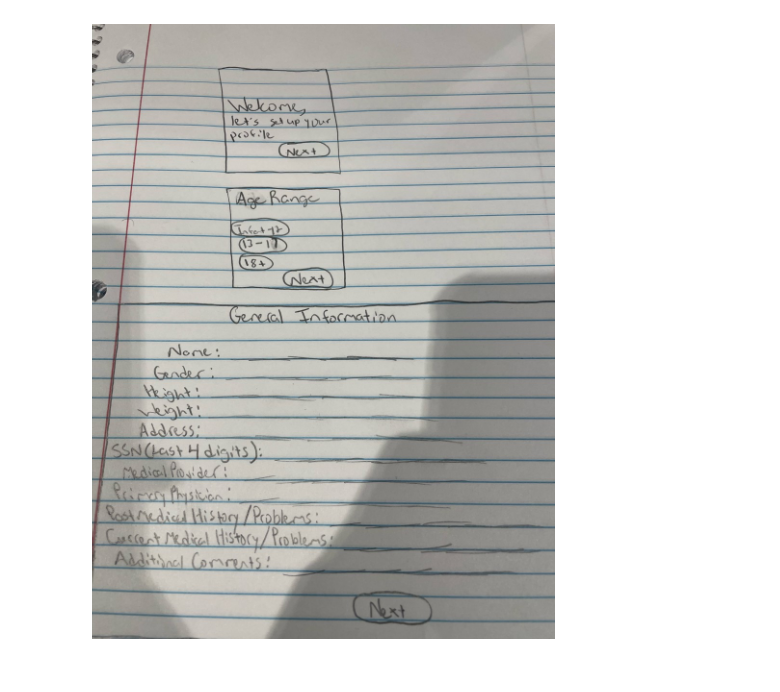 Welcome,
let's set up your
profile
Next
Age Range
Infant-12
13-17
18+
Next
General Information
Name:
Gender:
Height:
Weight:
Address:
SSN (Last 4 digits):
Medical Provider:
Primary Physician:
Past Medical History/Problems:
Current Medical History/Problems:
Additional Comments:
Next